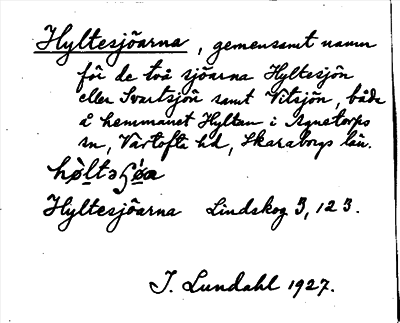 Hyltesjöarna, gemensamt namn
för de två sjöarna Hyltesjön
eller Svartsjön samt Vitsjön, båda
å hemmanet Hyltan i Agnetorps
sn, Vartofta hd, Skaraborgs län.
Hyltesjöarna Lindskog 5, 123.
J. Lundahl 1927.